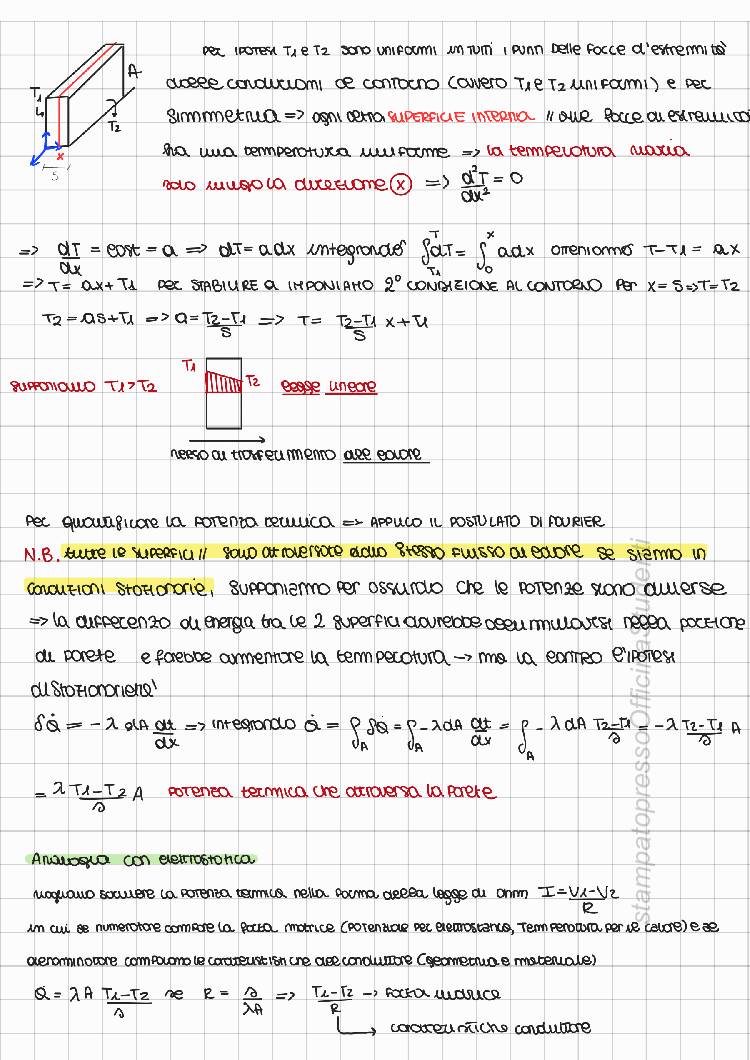 Per ipotesi T1 e T2 sono uniformi in tutti i punti delle facce d'estremità
A
T1
T2
x
S
dalle condizioni al contorno (ovvero T1 e T2 uniformi) e per
simmetria => ogni altra SUPERFICIE INTERNA // alle facce di estremità
ha una temperatura uniforme => la temperatura varia
solo lungo la direzione x => d²T/dx² = 0
=> dT/dx = cost = a => dT = a dx integrando ∫_T1^T dT = ∫_0^x a dx otteniamo T-T1 = ax
=> T = ax + T1 PER STABILIRE a IMPONIAMO 2° CONDIZIONE AL CONTORNO PER x = S => T = T2
T2 = aS + T1 => a = T2-T1/S => T = T2-T1/S x + T1
SUPPONIAMO T1 > T2
T1
T2
legge lineare
verso di trasferimento del calore
Per quantificare la POTENZA termica => APPLICO IL POSTULATO DI FOURIER
N.B. tutte le superfici // sono attraversate dallo stesso flusso di calore se siamo in
condizioni stazionarie, supponiamo per assurdo che le potenze siano diverse
=> la differenza di energia tra le 2 superfici dovrebbe accumularsi nella porzione
di parete e farebbe aumentare la temperatura -> ma la contro l'ipotesi
di stazionarietà
δQ̇ = -λ dA dt/dx => integrando Q̇ = ∫_A δQ̇ = ∫_A -λ dA dt/dx = ∫_A -λ dA T2-T1/s = -λ T2-T1/s A
= λ T1-T2/s A potenza termica che attraversa la parete
Analogia con elettrostatica
vogliamo scrivere la potenza termica nella forma della legge di Ohm I = V1-V2/R
in cui al numeratore compare la forza motrice (potenziale per elettrostatica, temperatura per il calore) e al
denominatore compaiono le caratteristiche del conduttore (geometria e materiale)
Q̇ = λA T1-T2/s se R = s/λA => T1-T2/R -> forza motrice
caratteristiche conduttore
stampatopressoOfficinaStudenti